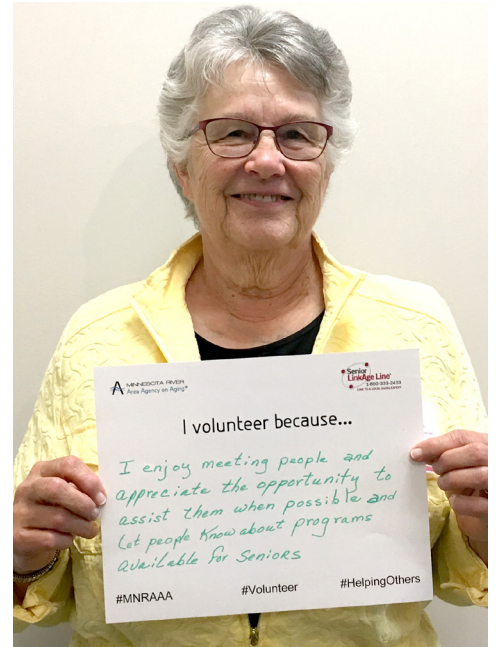 MINNESOTA RIVER
Area Agency on Aging®
Senior
LinkAge Line®
1-800-333-2433
I volunteer because...
I enjoy meeting people and
appreciate the opportunity to
assist them when possible and
Let people Know about programs
available for Seniors
#MNRAAA #Volunteer #HelpingOthers